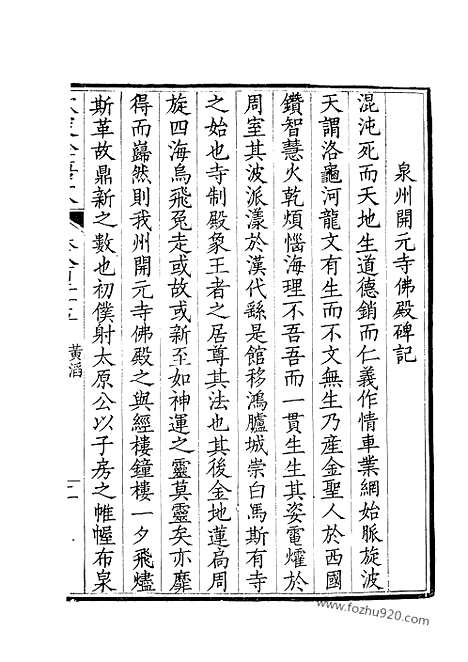 泉州開元寺佛殿碑記
混沌死而天地生道德銷而仁義作情車業網始脈旋波
天謂洛龜河龍文有生而不文無生乃產金聖人於西國
鑽智慧火乾煩惱海理不吾吾而一貫生生其姿電爠於
周室其波派漾於漢代繇是館移鴻臚城崇白馬斯有寺
之始也寺制殿象王者之居尊其法也其後金地蓮宮周
旋四海烏飛兔走或故或新至如神運之靈莫靈矣亦靡
得而巋然則我州開元寺佛殿之與經樓鐘樓一夕飛燼
斯革故鼎新之數也初僕射太原公以子房之帷幄布泉
黃滔
www.fozhu920.com